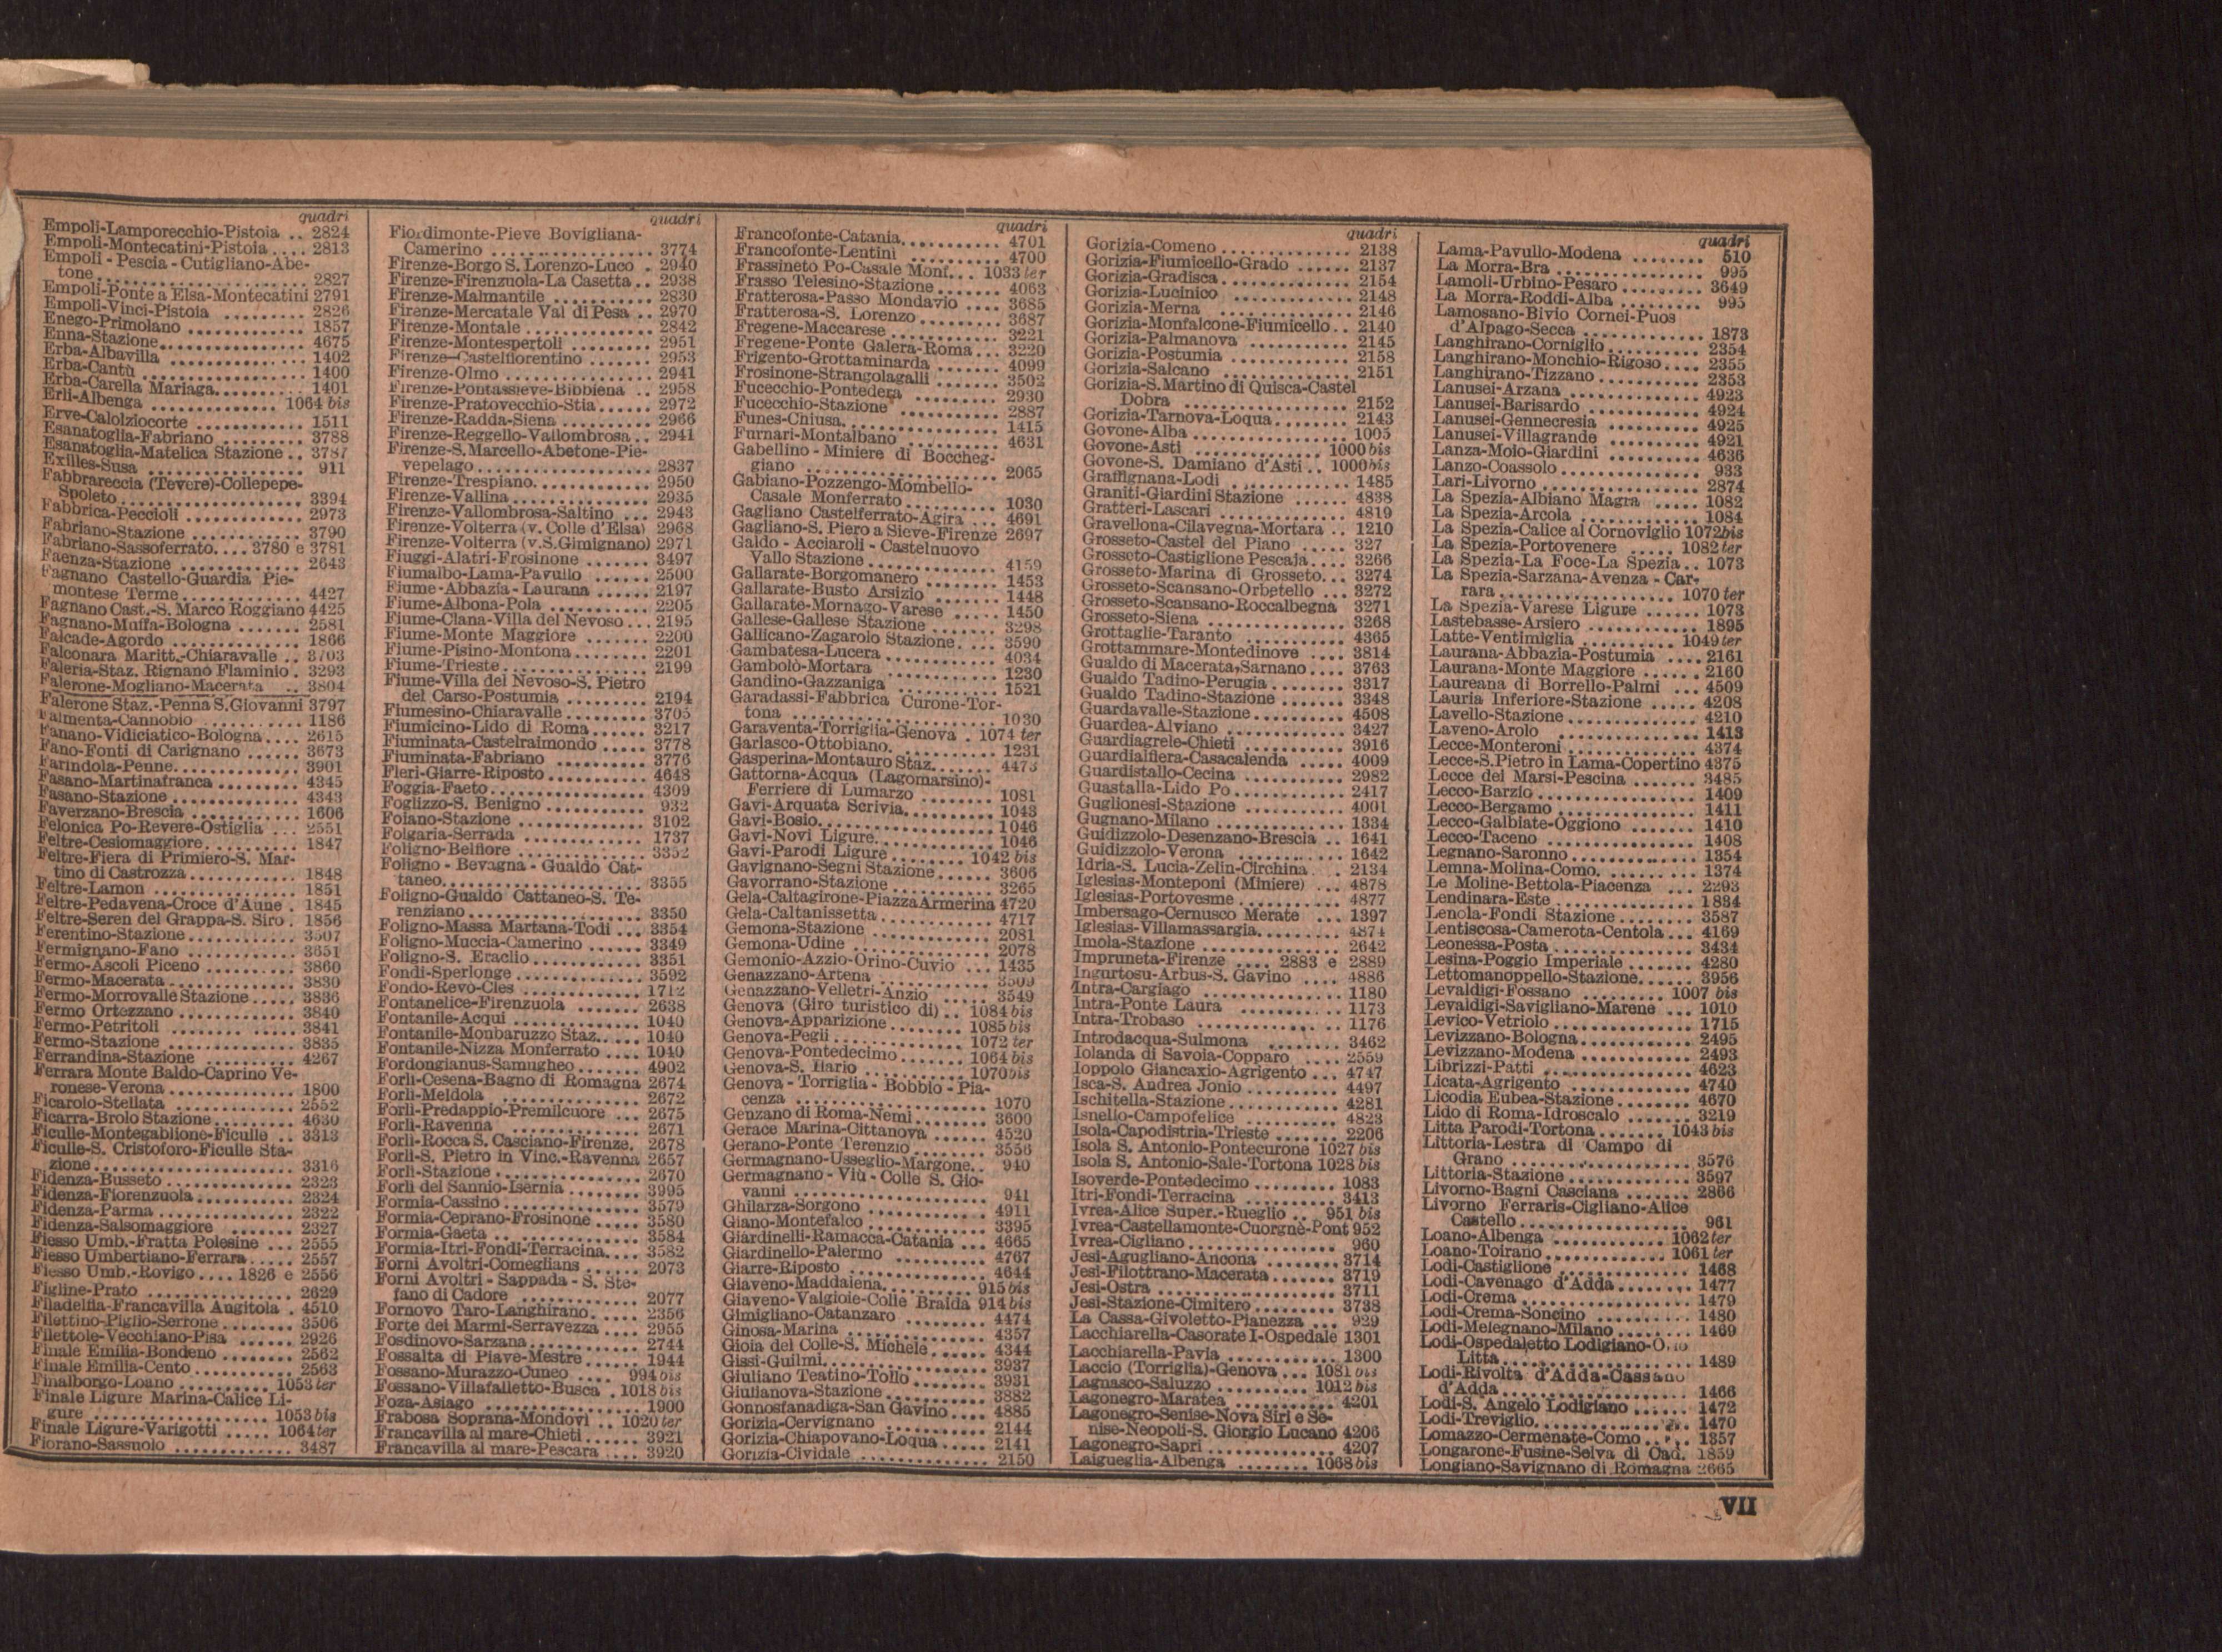 quadri
Empoli-Lamporecchio-Pistoia .. 2824
Empoli-Montecatini-Pistoia .... 2813
Empoli - Pescia - Cutigliano-Abe-
tone ........................... 2827
Empoli-Ponte a Elsa-Montecatini 2791
Empoli-Vinci-Pistoia ......... 2826
Enego-Primolano ............. 1857
Enna-Stazione................ 4675
Erba-Albavilla ............... 1402
Erba-Cantù .................. 1400
Erba-Carella Mariaga......... 1401
Erli-Albenga .............. 1064 bis
Erve-Calolziocorte ........... 1511
Esanatoglia-Fabriano ......... 3788
Esanatoglia-Matelica Stazione .. 3787
Exilles-Susa ................. 911
Fabbrareccia (Tevere)-Collepepe-
Spoleto ..................... 3394
Fabbrica-Peccioli ............. 2973
Fabriano-Stazione ............ 3790
Fabriano-Sassoferrato.... 3780 e 3781
Faenza-Stazione ............. 2643
Fagnano Castello-Guardia Pie-
montese Terme.............. 4427
Fagnano Cast.-S. Marco Roggiano 4425
Fagnano-Muffa-Bologna ....... 2581
Falcade-Agordo .............. 1866
Falconara Maritt.-Chiaravalle .. 3703
Faleria-Staz. Rignano Flaminio . 3293
Falerone-Mogliano-Macerata .. 3804
Falerone Staz.-Penna S.Giovanni 3797
Falmenta-Cannobio ........... 1186
Fanano-Vidiciatico-Bologna.... 2615
Fano-Fonti di Carignano ...... 3673
Farindola-Penne.............. 3901
Fasano-Martinafranca ........ 4345
Fasano-Stazione .............. 4343
Faverzano-Brescia ............ 1606
Felonica Po-Revere-Ostiglia ... 2551
Feltre-Cesiomaggiore.......... 1847
Feltre-Fiera di Primiero-S. Mar-
tino di Castrozza ............ 1848
Feltre-Lamon ................ 1851
Feltre-Pedavena-Croce d'Aune . 1845
Feltre-Seren del Grappa-S. Siro . 1856
Ferentino-Stazione............ 3507
Fermignano-Fano ............ 3651
Fermo-Ascoli Piceno .......... 3860
Fermo-Macerata.............. 3830
Fermo-Morrovalle Stazione ..... 3836
Fermo Ortezzano ............. 3840
Fermo-Petritoli .............. 3841
Fermo-Stazione .............. 3835
Ferrandina-Stazione .......... 4267
Ferrara Monte Baldo-Caprino Ve-
ronese-Verona ............... 1800
Ficarolo-Stellata .............. 2552
Ficarra-Brolo Stazione......... 4630
Ficulle-Montegabbione-Ficulle .. 3313
Ficulle-S. Cristoforo-Ficulle Sta-
zione ....................... 3316
Fidenza-Busseto .............. 2323
Fidenza-Fiorenzuola........... 2324
Fidenza-Parma ............... 2322
Fidenza-Salsomaggiore ........ 2327
Fiesso Umb.-Fratta Polesine ... 2555
Fiesso Umbertiano-Ferrara..... 2557
Fiesso Umb.-Rovigo.... 1826 e 2556
Figline-Prato ................ 2629
Filadelfia-Francavilla Angitola . 4510
Filettino-Piglio-Serrone........ 3506
Filettole-Vecchiano-Pisa ...... 2926
Finale Emilia-Bondeno ........ 2562
Finale Emilia-Cento .......... 2563
Finalborgo-Loano .......... 1053 ter
Finale Ligure Marina-Calice Li-
gure ..................... 1053 bis
Finale Ligure-Varigotti ..... 1064 ter
Fiorano-Sassuolo ............. 3487
quadri
Fiordimonte-Pieve Bovigliana-
Camerino ................... 3774
Firenze-Borgo S. Lorenzo-Luco . 2940
Firenze-Firenzuola-La Casetta .. 2938
Firenze-Malmantile ........... 2830
Firenze-Mercatale Val di Pesa .. 2970
Firenze-Montale .............. 2842
Firenze-Montespertoli ......... 2951
Firenze-Castelfiorentino ....... 2953
Firenze-Olmo ................ 2941
Firenze-Pontassieve-Bibbiena .. 2958
Firenze-Pratovecchio-Stia...... 2972
Firenze-Radda-Siena .......... 2966
Firenze-Reggello-Vallombrosa .. 2941
Firenze-S. Marcello-Abetone-Pie-
vepelago.................... 2837
Firenze-Trespiano............. 2950
Firenze-Vallina ............... 2935
Firenze-Vallombrosa-Saltino ... 2943
Firenze-Volterra (v. Colle d'Elsa) 2968
Firenze-Volterra (v.S.Gimignano) 2971
Fiuggi-Alatri-Frosinone ....... 3497
Fiumalbo-Lama-Pavullo ...... 2500
Fiume-Abbazia-Laurana ...... 2197
Fiume-Albona-Pola ........... 2205
Fiume-Clana-Villa del Nevoso ... 2195
Fiume-Monte Maggiore ....... 2200
Fiume-Pisino-Montona........ 2201
Fiume-Trieste................ 2199
Fiume-Villa del Nevoso-S. Pietro
del Carso-Postumia .......... 2194
Fiumesino-Chiaravalle ........ 3705
Fiumicino-Lido di Roma ...... 3217
Fiuminata-Castelraimondo .... 3778
Fiuminata-Fabriano .......... 3776
Fleri-Giarre-Riposto .......... 4648
Foggia-Faeto................. 4309
Foglizzo-S. Benigno ........... 932
Foiano-Stazione .............. 3102
Folgaria-Serrada ............. 1737
Foligno-Belfiore .............. 3352
Foligno - Bevagna - Gualdo Cat-
taneo....................... 3355
Foligno-Gualdo Cattaneo-S. Te-
renziano .................... 3350
Foligno-Massa Martana-Todi ... 3354
Foligno-Muccia-Camerino ...... 3349
Foligno-S. Eraclio............. 3351
Fondi-Sperlonge .............. 3592
Fondo-Revò-Cles ............. 1712
Fontanelice-Firenzuola ....... 2638
Fontanile-Acqui .............. 1040
Fontanile-Monbaruzzo Staz..... 1040
Fontanile-Nizza Monferrato .... 1040
Fordongianus-Samugheo....... 4902
Forlì-Cesena-Bagno di Romagna 2674
Forlì-Meldola ................ 2672
Forlì-Predappio-Premilcuore ... 2675
Forlì-Ravenna ............... 2671
Forlì-Rocca S. Casciano-Firenze. 2678
Forlì-S. Pietro in Vinc.-Ravenna 2657
Forlì-Stazione ................ 2670
Forlì del Sannio-Isernia ....... 3995
Formia-Cassino............... 3579
Formia-Ceprano-Frosinone ..... 3580
Formia-Gaeta ................ 3584
Formia-Itri-Fondi-Terracina.... 3582
Forni Avoltri-Comeglians ...... 2073
Forni Avoltri - Sappada - S. Ste-
fano di Cadore .............. 2077
Fornovo Taro-Langhirano...... 2356
Forte dei Marmi-Serravezza .... 2955
Fosdinovo-Sarzana............ 2744
Fossalta di Piave-Mestre ...... 1944
Fossano-Murazzo-Cuneo .... 994 bis
Fossano-Villafalletto-Busca . 1018 bis
Foza-Asiago ................. 1900
Frabosa Soprana-Mondovì .. 1020 ter
Francavilla al mare-Chieti...... 3921
Francavilla al mare-Pescara .... 3920
quadri
Francofonte-Catania........... 4701
Francofonte-Lentini .......... 4700
Frassineto Po-Casale Monf... 1033 ter
Frasso Telesino-Stazione ....... 4063
Fratterosa-Passo Mondavio .... 3685
Fratterosa-S. Lorenzo ......... 3687
Fregene-Maccarese ............ 3221
Fregene-Ponte Galera-Roma ... 3220
Frigento-Grottaminarda ....... 4099
Frosinone-Strangolagalli ...... 3502
Fucecchio-Pontedera .......... 2930
Fucecchio-Stazione ........... 2887
Funes-Chiusa................. 1415
Furnari-Montalbano .......... 4631
Gabellino - Miniere di Boccheg-
giano ...................... 2065
Gabiano-Pozzengo-Mombello-
Casale Monferrato ........... 1030
Gagliano Castelferrato-Agira ... 4691
Gagliano-S. Piero a Sieve-Firenze 2697
Galdo - Acciaroli - Castelnuovo
Vallo Stazione ............... 4159
Gallarate-Borgomanero ........ 1453
Gallarate-Busto Arsizio ....... 1448
Gallarate-Mornago-Varese ..... 1450
Gallese-Gallese Stazione ....... 3298
Gallicano-Zagarolo Stazione .... 3590
Gambatesa-Lucera ............ 4034
Gambolò-Mortara ............ 1230
Gandino-Gazzaniga ........... 1521
Garadassi-Fabbrica Curone-Tor-
tona ....................... 1030
Garaventa-Torriglia-Genova . 1074 ter
Garlasco-Ottobiano............ 1231
Gasperina-Montauro Staz....... 4473
Gattorna-Acqua (Lagomarsino)-
Ferriere di Lumarzo ......... 1081
Gavi-Arquata Scrivia.......... 1043
Gavi-Bosio................... 1046
Gavi-Novi Ligure............. 1046
Gavi-Parodi Ligure ........ 1042 bis
Gavignano-Segni Stazione...... 3606
Gavorrano-Stazione ........... 3265
Gela-Caltagirone-PiazzaArmerina 4720
Gela-Caltanissetta............. 4717
Gemona-Stazione ............. 2081
Gemona-Udine ............... 2078
Gemonio-Azzio-Orino-Cuvio ... 1435
Genazzano-Artena ............ 3509
Genazzano-Velletri-Anzio ..... 3549
Genova (Giro turistico di) .. 1084 bis
Genova-Apparizione......... 1085 bis
Genova-Pegli .............. 1072 ter
Genova-Pontedecimo....... 1064 bis
Genova-S. Ilario ........... 1070 bis
Genova - Torriglia - Bobbio - Pia-
cenza ...................... 1070
Genzano di Roma-Nemi....... 3600
Gerace Marina-Cittanova ...... 4520
Gerano-Ponte Terenzio ........ 3556
Germagnano-Usseglio-Margone.. 940
Germagnano - Viù - Colle S. Gio-
vanni ...................... 941
Ghilarza-Sorgono ............. 4911
Giano-Montefalco ............. 3395
Giardinelli-Ramacca-Catania ... 4665
Giardinello-Palermo .......... 4767
Giarre-Riposto ............... 4644
Giaveno-Maddalena......... 915 bis
Giaveno-Valgioie-Colle Braida 914 bis
Gimigliano-Catanzaro ......... 4474
Ginosa-Marina ............... 4357
Gioia del Colle-S. Michele...... 4344
Gissi-Guilmi.................. 3937
Giuliano Teatino-Tollo ........ 3931
Giulianova-Stazione ........... 3882
Gonnosfanadiga-San Gavino.... 4885
Gorizia-Cervignano ........... 2144
Gorizia-Chiapovano-Loqua ..... 2141
Gorizia-Cividale .............. 2150
quadri
Gorizia-Comeno .............. 2138
Gorizia-Fiumicello-Grado ...... 2137
Gorizia-Gradisca.............. 2154
Gorizia-Lucinico ............. 2148
Gorizia-Merna ............... 2146
Gorizia-Monfalcone-Fiumicello .. 2140
Gorizia-Palmanova ........... 2145
Gorizia-Postumia ............. 2158
Gorizia-Salcano .............. 2151
Gorizia-S. Martino di Quisca-Castel
Dobra ..................... 2152
Gorizia-Tarnova-Loqua........ 2143
Govone-Alba ................. 1005
Govone-Asti .............. 1000 bis
Govone-S. Damiano d'Asti .. 1000 bis
Graffignana-Lodi ............. 1485
Graniti-Giardini Stazione ...... 4838
Gratteri-Lascari .............. 4819
Gravellona-Cilavegna-Mortara .. 1210
Grosseto-Castel del Piano ..... 327
Grosseto-Castiglione Pescaja .... 3266
Grosseto-Marina di Grosseto... 3274
Grosseto-Scansano-Orbetello ... 3272
Grosseto-Scansano-Roccalbegna 3271
Grosseto-Siena ............... 3268
Grottaglie-Taranto ........... 4365
Grottammare-Montedinove .... 3814
Gualdo di Macerata-Sarnano.... 3763
Gualdo Tadino-Perugia ........ 3317
Gualdo Tadino-Stazione ....... 3348
Guardavalle-Stazione .......... 4508
Guardea-Alviano ............. 3427
Guardiagrele-Chieti ........... 3916
Guardialfiera-Casacalenda ..... 4009
Guardistallo-Cecina ........... 2982
Guastalla-Lido Po............. 2417
Guglionesi-Stazione ........... 4001
Gugnano-Milano .............. 1334
Guidizzolo-Desenzano-Brescia .. 1641
Guidizzolo-Verona ............ 1642
Idria-S. Lucia-Zelin-Circhina . . 2134
Iglesias-Monteponi (Miniere) ... 4878
Iglesias-Portovesme ........... 4877
Imbersago-Cernusco Merate ... 1397
Iglesias-Villamassargia......... 4874
Imola-Stazione ............... 2642
Impruneta-Firenze .... 2883 e 2889
Ingurtosu-Arbus-S. Gavino .... 4886
Intra-Cargiago ............... 1180
Intra-Ponte Laura ........... 1173
Intra-Trobaso ................ 1176
Introdacqua-Sulmona ........ 3462
Iolanda di Savoia-Copparo .... 2559
Ioppolo Giancaxio-Agrigento ... 4747
Isca-S. Andrea Jonio .......... 4497
Ischitella-Stazione............. 4281
Isnello-Campofelice ........... 4823
Isola-Capodistria-Trieste ....... 2206
Isola S. Antonio-Pontecurone 1027 bis
Isola S. Antonio-Sale-Tortona 1028 bis
Isoverde-Pontedecimo ......... 1083
Itri-Fondi-Terracina .......... 3413
Ivrea-Alice Super.-Rueglio .. 951 bis
Ivrea-Castellamonte-Cuorgnè-Pont 952
Ivrea-Cigliano ................ 960
Jesi-Agugliano-Ancona ........ 3714
Jesi-Filottrano-Macerata....... 3719
Jesi-Ostra ................... 3711
Jesi-Stazione-Cimitero ......... 3738
La Cassa-Givoletto-Pianezza ... 929
Lacchiarella-Casorate I-Ospedale 1301
Lacchiarella-Pavia ............ 1300
Laccio (Torriglia)-Genova ... 1081 bis
Lagnasco-Saluzzo .......... 1012 bis
Lagonegro-Maratea ........... 4201
Lagonegro-Senise-Nova Siri e Se-
nise-Neopoli-S. Giorgio Lucano 4206
Lagonegro-Sapri .............. 4207
Laigueglia-Albenga ........ 1068 bis
quadri
Lama-Pavullo-Modena ........ 510
La Morra-Bra ................ 995
Lamoli-Urbino-Pesaro ......... 3649
La Morra-Roddi-Alba ......... 995
Lamosano-Bivio Cornei-Puos
d'Alpago-Secca .............. 1873
Langhirano-Corniglio .......... 2354
Langhirano-Monchio-Rigoso .... 2355
Langhirano-Tizzano ........... 2353
Lanusei-Arzana .............. 4923
Lanusei-Barisardo ............ 4924
Lanusei-Gennecresia .......... 4925
Lanusei-Villagrande .......... 4921
Lanza-Molo-Giardini .......... 4636
Lanzo-Coassolo ............... 933
Lari-Livorno ................. 2874
La Spezia-Albiano Magra ..... 1082
La Spezia-Arcola ............. 1084
La Spezia-Calice al Cornoviglio 1072bis
La Spezia-Portovenere ..... 1082 ter
La Spezia-La Foce-La Spezia.. 1073
La Spezia-Sarzana-Avenza - Car-
rara ..................... 1070 ter
La Spezia-Varese Ligure ...... 1073
Lastebasse-Arsiero ............ 1895
Latte-Ventimiglia .......... 1049 ter
Laurana-Abbazia-Postumia .... 2161
Laurana-Monte Maggiore ...... 2160
Laureana di Borrello-Palmi ... 4509
Lauria Inferiore-Stazione ..... 4208
Lavello-Stazione .............. 4210
Laveno-Arolo ................ 1413
Lecce-Monteroni .............. 4374
Lecce-S.Pietro in Lama-Copertino 4375
Lecce dei Marsi-Pescina ....... 3485
Lecco-Barzio ................. 1409
Lecco-Bergamo ............... 1411
Lecco-Galbiate-Oggiono ....... 1410
Lecco-Taceno ................ 1408
Legnano-Saronno............. 1354
Lemna-Molina-Como.......... 1374
Le Moline-Bettola-Piacenza ... 2293
Lendinara-Este ............... 1834
Lenola-Fondi Stazione ........ 3587
Lentiscosa-Camerota-Centola... 4169
Leonessa-Posta ............... 3434
Lesina-Poggio Imperiale ....... 4280
Lettomanoppello-Stazione...... 3956
Levaldigi-Fossano ......... 1007 bis
Levaldigi-Savigliano-Marene ... 1010
Levico-Vetriolo ............... 1715
Levizzano-Bologna............ 2495
Levizzano-Modena ............ 2493
Librizzi-Patti ................ 4623
Licata-Agrigento ............. 4740
Licodia Eubea-Stazione ........ 4670
Lido di Roma-Idroscalo ....... 3219
Litta Parodi-Tortona ....... 1043 bis
Littoria-Lestra di Campo di
Grano ..................... 3576
Littoria-Stazione.............. 3597
Livorno-Bagni Casciana ....... 2866
Livorno Ferraris-Cigliano-Alice
Castello .................... 961
Loano-Albenga ............ 1062 ter
Loano-Toirano............. 1061 ter
Lodi-Castiglione .............. 1468
Lodi-Cavenago d'Adda ........ 1477
Lodi-Crema .................. 1479
Lodi-Crema-Soncino .......... 1480
Lodi-Melegnano-Milano ........ 1469
Lodi-Ospedaletto Lodigiano-
Litta....................... 1489
Lodi-Rivolta d'Adda-Cassano
d'Adda..................... 1466
Lodi-S. Angelo Lodigiano ...... 1472
Lodi-Treviglio................ 1470
Lomazzo-Cermenate-Como..... 1357
Longarone-Fusine-Selva di Cad. 1859
Longiano-Savignano di Romagna 2665
VII